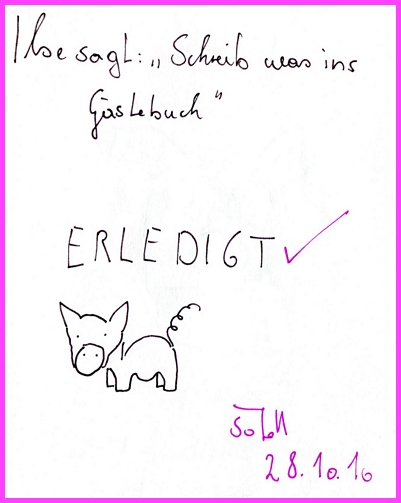 Ilse sagt: „Schreib was ins
Gästebuch"
ERLEDIGT ✓
28.10.10